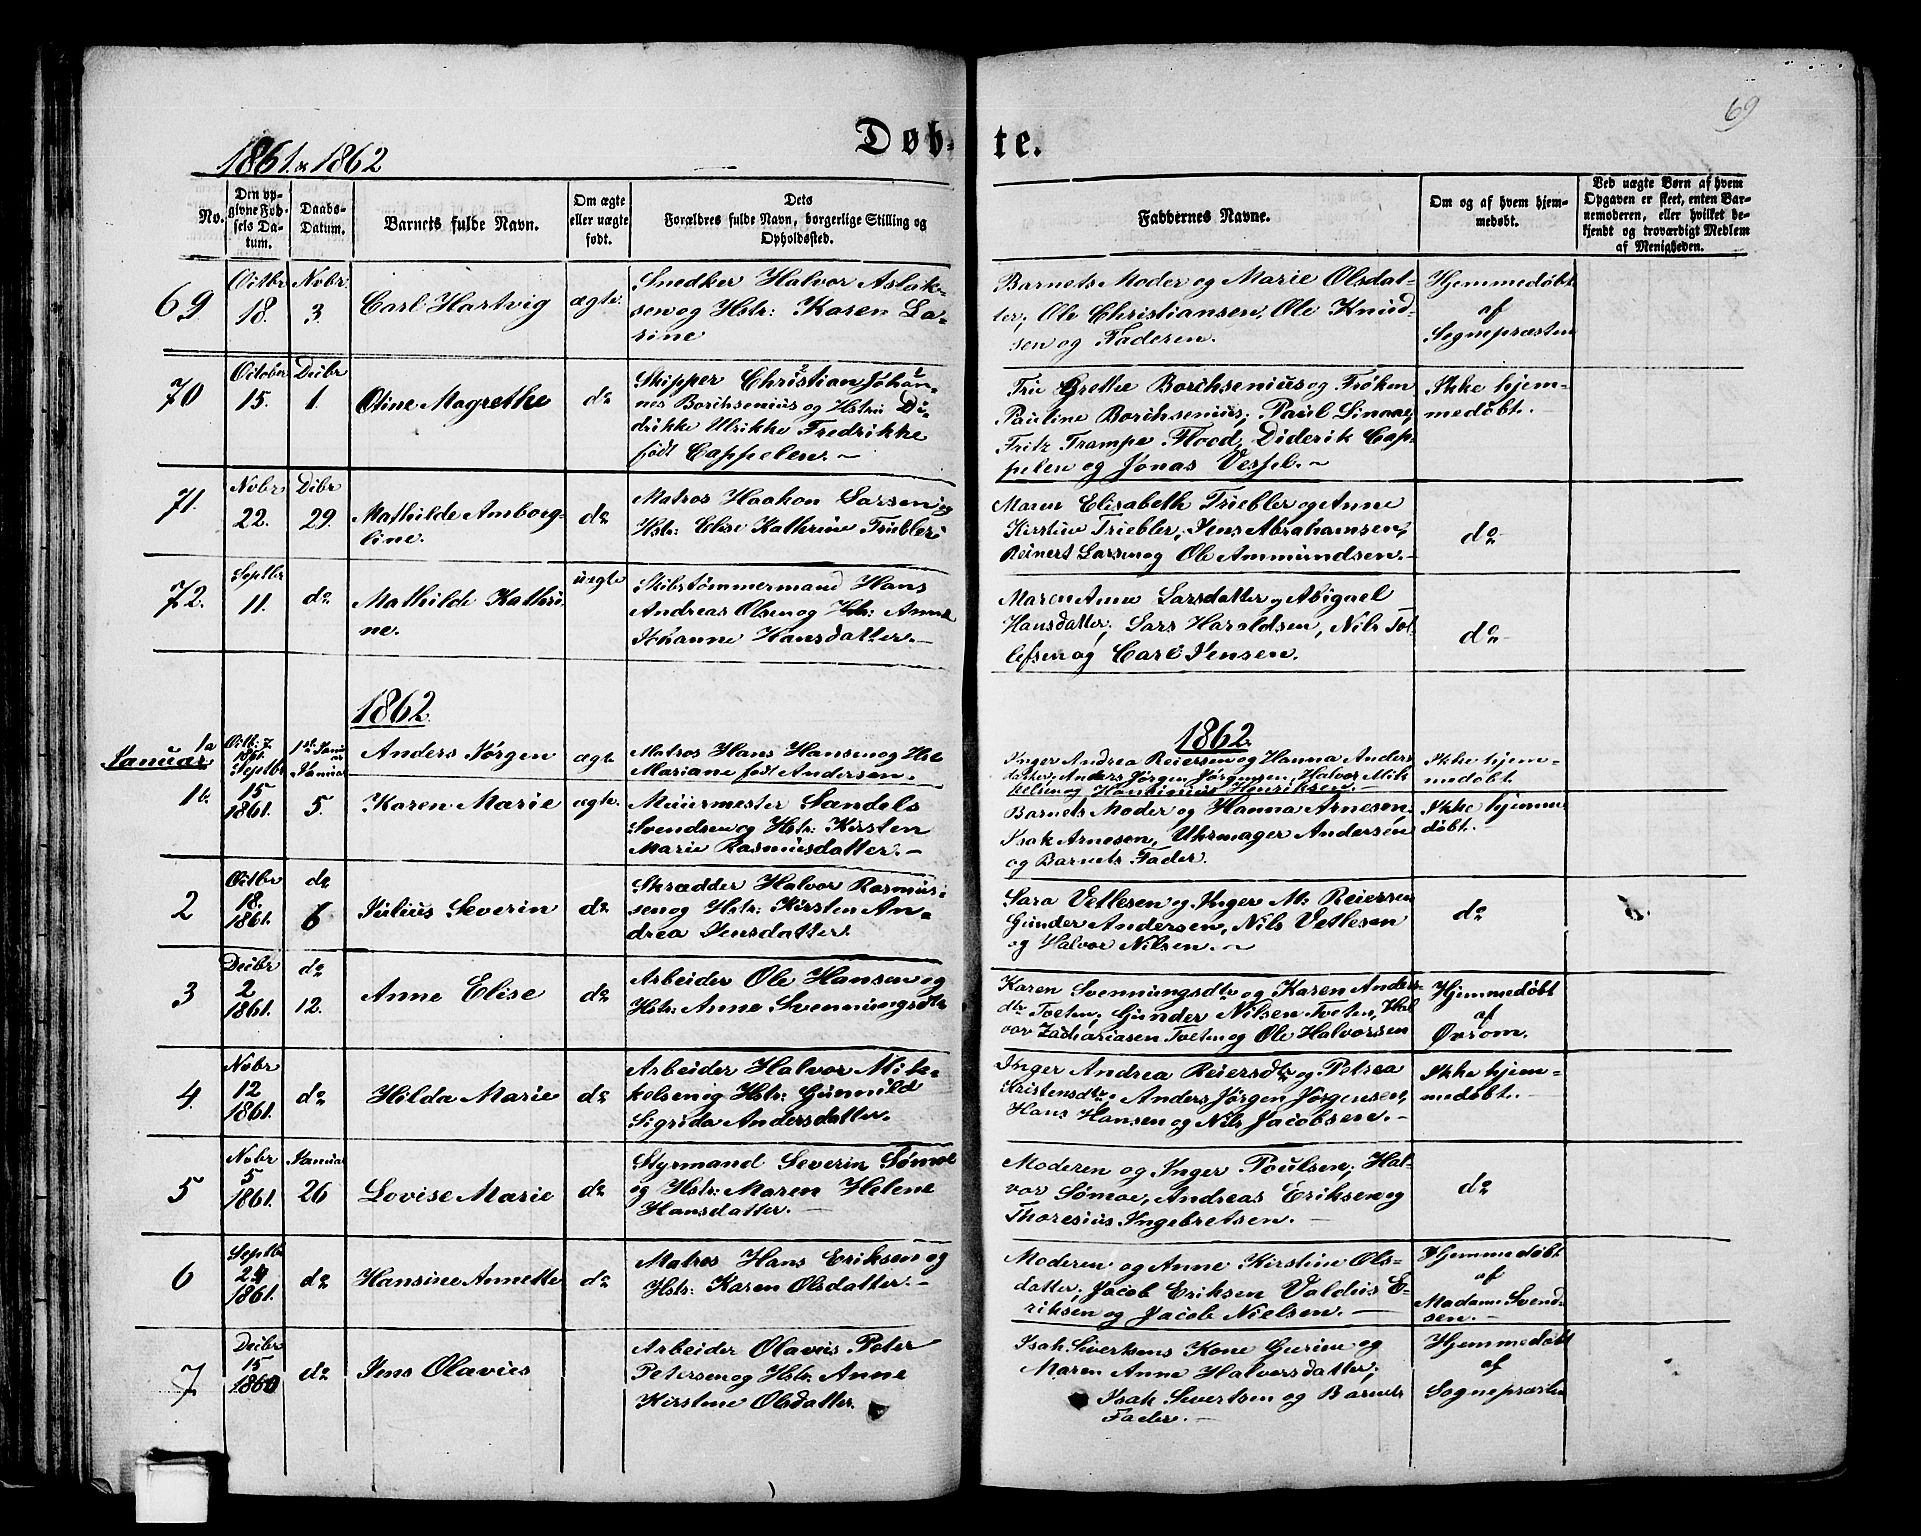 69
Døb-te.
1861 & 1862
No.
Den op-
givne Fød-
sels Da-
tum.
Daabs-
Datum.
Barnets fulde Navn.
Om ægte
eller uægte
født.
Dets
Forældres fulde Navn, borgerlige Stilling og
Opholdssted.
Faddernes Navne.
Om og af hvem hjem-
medøbt.
Ved uægte Børn af hvem
Opgaven er skeet, enten Bar-
nemoderen, eller hvilket be-
kjendt og troværdigt Medlem
af Menigheden.
69
Octbr
18.
Novbr
3.
Carl Hartvig
ægte
Snedker Halvor Aslak-
sen og Hstr: Karen La-
rine
Barnets Moder og Marie Olsdat-
ter; Ole Christiansen, Ole Knud-
sen og Faderen.
Hjemmedøbt
af
Sognepræsten
70
October
15.
Decbr
1.
Oline Magrethe
do
Skipper Christian Johan-
nes Borchsenius og Hstr: Di-
drikke Ulrikke Fredrikke
født Cappelen. -
Fru Grethe Borchsenius og Frøken
Pauline Borchsenius; Paul Linaae,
Fritz Trampe Flood, Diderik Cap-
pelen og Jonas Vessel. -
Ikke hjem-
medøbt. -
71.
Novbr
22.
Decbr
29.
Mathilde Amborg-
line.
do
Matros Haakon Larsen og
Hstr: Elise Kathrine Triebler
Maren Elisabeth Triebler og Anne
Kirstine Triebler, Jens Abrahamsen,
Reinert Larsen og Ole Ammundsen. -
do
72.
Septbr
11.
do
Mathilde Kathri-
ne.
uægte
Skibstømmermand Hans
Andreas Olsen og Hstr: Anne
Johanne Hansdatter. -
Maren Anne Larsdatter og Abigael
Hansdatter; Lars Haraldsen, Nils Tol-
lefsen og Carl Jensen.
do
1862.
1862.
Januar
1a
Octb: 7
1861.
1ste Janu
ar
Anders Jørgen
ægte
Matros Hans Hansen og Hst
Mariane født Andersen.
Inger Andrea Reiersen og Hanna Anders
datter; Anders Jørgen Jørgensen, Halvor Mik
kelsen og Henriksen. -
Ikke hjem-
medøbt.
1b.
Septbr
15
1861.
Januar
5.
Karen Marie
ægte.
Muurmester Sandels
Svendsen og Hstr: Kirsten
Marie Rasmusdatter. -
Barnets Moder og Hanna Arnesen,
Isak Arnesen, Uhrmager Andersen
og Barnets Fader.
Ikke hjemme
døbt. -
2
Octbr
18.
1861.
do
6
Julius Severin
do
Skrædder Halvor Rasmus-
sen og Hstr: Kirsten An-
drea Jensdatter.
Sara Vetlesen og Inger M: Reiersen
Gunder Andersen, Nils Vetlesen
og Halvor Nilsen. -
do
3
Decbr
2
1861.
do
12.
Anne Elise
do
Arbeider Ole Hansen og
Hstr: Anne Svenningsdtr
Karen Svenningsdtr og Karen Anders-
dtr Tveten; Gunder Nilsen Tveten, Hal
vor Zachariasen Tveten og Ole Halvorsen
Hjemmedøbt
af
Ørsom.
4.
Novbr
12
1861.
do
Hilda Marie
do
Arbeider Halvor Mik-
kelsen og Hstr: Gunnild
Sigrida Andersdatter.
Inger Andrea Reiersdtr og Petrea
Kristensdtr; Anders Jørgen Jørgensen,
Hans Hansen og Nils Jacobsen. -
Ikke hjem-
medøbt. -
5
Novbr
5
1861.
Januar
26
Lovise Marie
do
Styrmand Severin Sømoe
og Hstr: Maren Helene
Hansdatter. -
Moderen og Inger Poulsen; Hal-
vor Sømoe, Andreas Eriksen og
Thoresius Ingebretsen. -
do
6
Septbr
29
1861.
do
Hansine Annette
do
Matros Hans Eriksen og
Hstr: Karen Olsdatter. -
Moderen og Anne Kirstine Ols-
datter; Jacob Eriksen Valdius E-
riksen og Jacob Nielsen. -
Hjemmedøbt
af
Madame Svend-
sen. -
7
Decbr
15
1860
do
Jens Olavus
Arbeider Olavus Peter
Petersen og Hstr: Anne
Kirstine Olsdatter.
Isak Sivertsens Kone Gurine og
Maren Anne Halvorsdatter;
Isak Sivertsen og Barnets
Fader. -
Hjemmedøbt
af
Sognepræsten